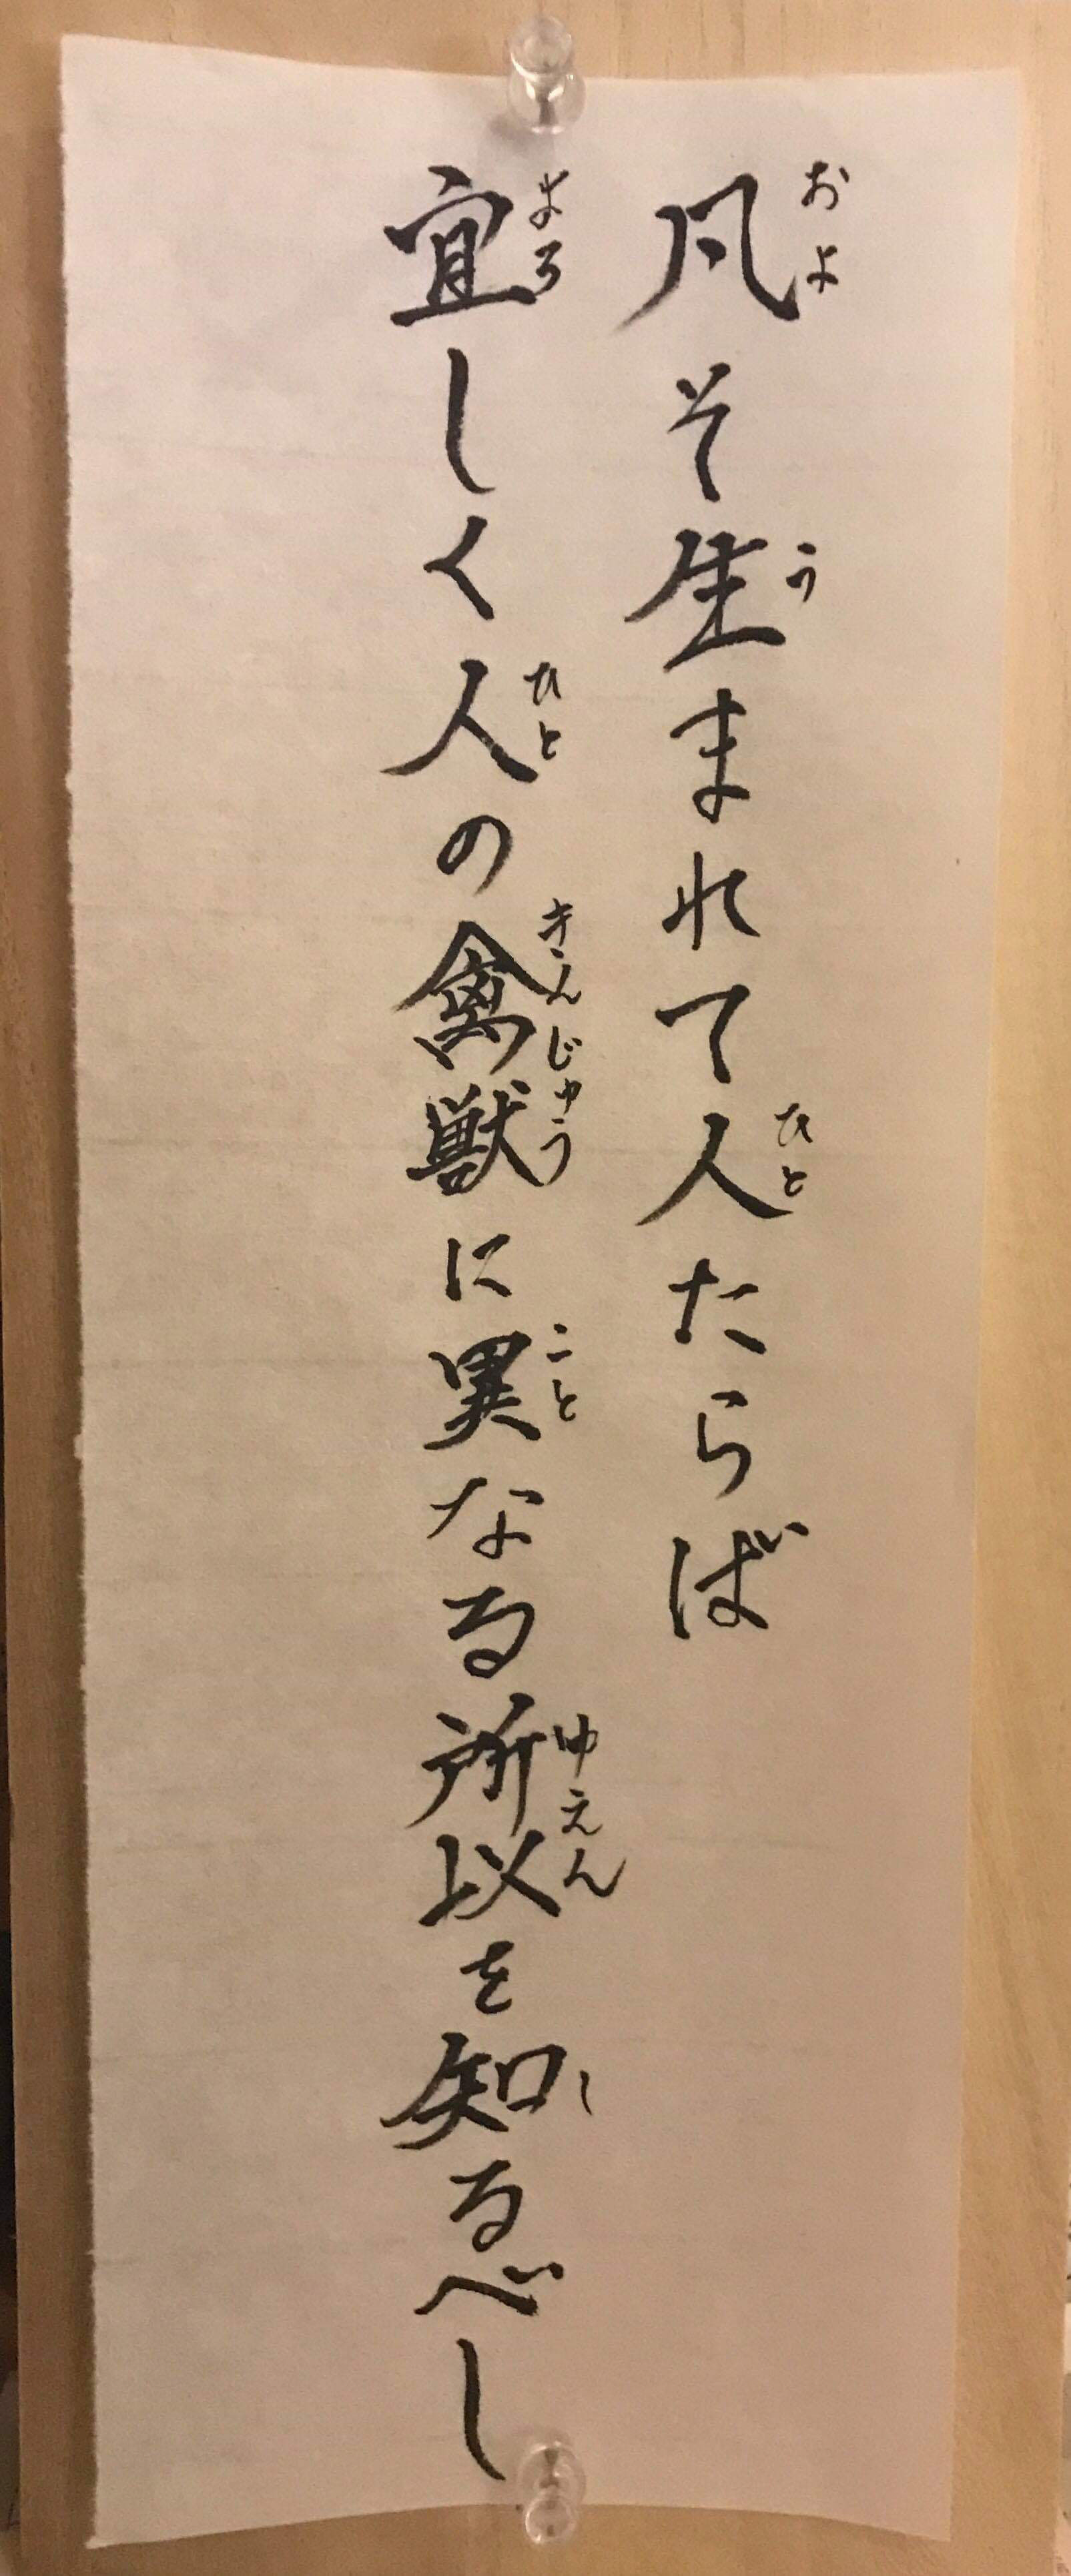 凡そ生まれて人たらば
およ
う
ひと
宜しく人の禽獣に異なる所以を知るべし
よろ
ひと
きんじゅう
こと
ゆえん
し